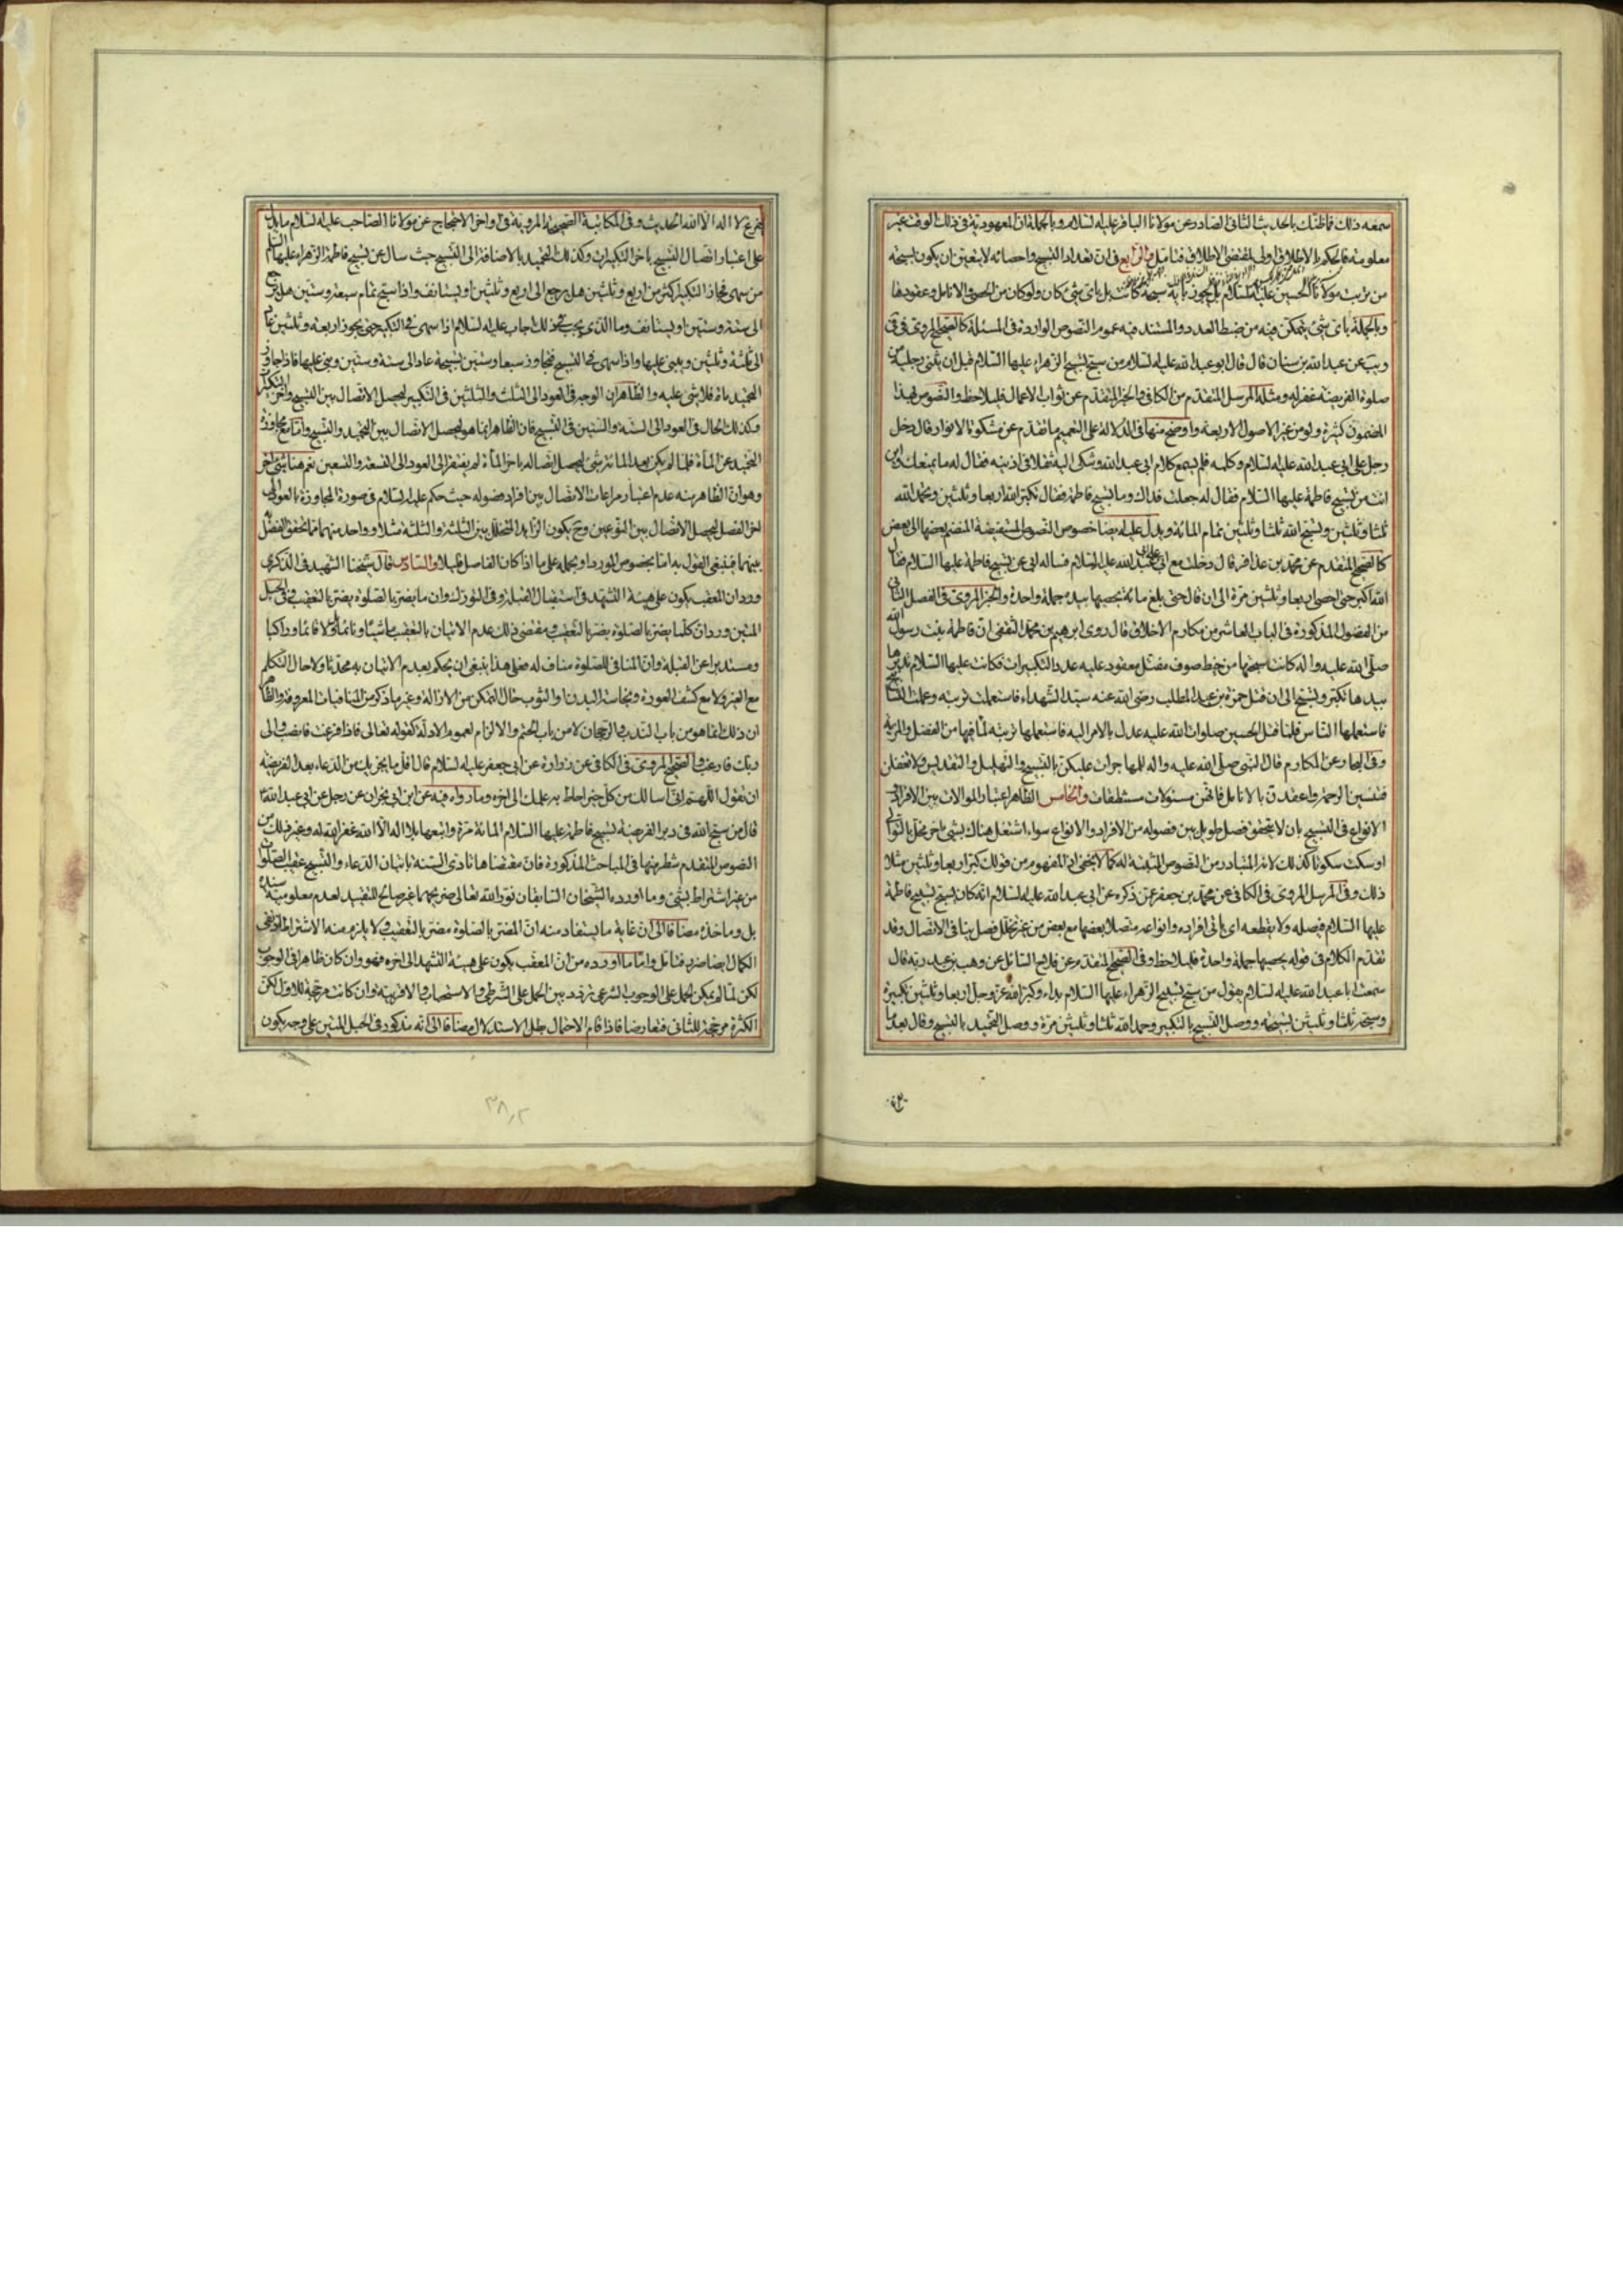 سمعه ذلك فاظنك بالحديث الثاني الصادر عن مولانا الباقر عليه السلام وبالجملة ان المعهودية في ذلك الوقت غير
معلومة فالحكم بالاطلاق اولى لمقتضى الاطلاق فتامل والرابع في ان تعداد التسبيح واحصائه لا يتعين ان يكون بسبحة
من تربت مولانا الحسين عليه السلام بل يجوز باية سبحة كانت بل باى شئ كان ولو كان من الحصى والانامل وعقودها
وبالجملة باى شئ يتمكن فيه من ضبط العدد والمستند فيه عموم النصوص الواردة في المسئلة كالصحيح المروى في في
ويب عن عبد الله بن سنان قال قال ابو عبد الله عليه السلام من سبح تسبيح الزهراء عليها السلام قبل ان يثنى رجليه من
صلوة الفريضة غفر له ومثله المرسل المتقدم من الكافي والخبر المتقدم عن ثواب الاعمال فليلاحظ والنصوص بهذا
المضمون كثيرة ولو من غير الاصول الاربعة واوضح منها في الدلالة على التعميم ما تقدم عن مشكوة الانوار قال دخل
رجل على ابي عبد الله عليه السلام وكلمه فلم يسمع كلام ابي عبد الله وشكى اليه ثقلا في اذنيه فقال له ما يمنعك واين
انت من تسبيح فاطمة عليها السلام فقال له جعلت فداك وما تسبيح فاطمة فقال تكبر الله اربعا وثلثين وتحمد الله
ثلثا وثلثين وتسبح الله ثلثا وثلثين تمام المائة ويدل عليه ايضا خصوص النصوص المستفيضة المنضم بعضها الى بعض
كالصحيح المتقدم عن محمد بن عذافر قال دخلت مع ابي على ابي عبد الله عليه السلام فساله ابي عن تسبيح فاطمة عليها السلام فقال
الله اكبر حتى احصى اربعا وثلثين مرة الى ان قال حتى بلغ مائة يحصيها بيده جملة واحدة والخبر المروى في الفصل الثاني
من الفصول المذكورة في الباب العاشر من مكارم الاخلاق قال روى ابرهيم بن محمد الثقفى ان فاطمة بنت رسول الله
صلى الله عليه واله كانت سبحتها من خيط صوف مفتل معقود عليه عدد التكبيرات فكانت عليها السلام تديرها
بيدها تكبر وتسبح الى ان قتل حمزة بن عبد المطلب رضي الله عنه سيد الشهداء فاستعملت تربته وعملت التسابيح
فاستعملها الناس فلما قتل الحسين صلوات الله عليه عدل بالامر اليه فاستعملها تربته لما فيها من الفضل والمزية
وفي البحار عن المكارم قال النبي صلى الله عليه واله للمهاجرات عليكن بالتسبيح والتهليل والتقديس ولا تغفلن
فتنسين الرحمة واعقدن بالانامل فانهن مسئولات مستنطقات والخامس الظاهر اعتبار الموالات بين الافراد و
الانواع في التسبيح بان لا يتحقق فصل طويل بين فصوله من الافراد والانواع سواء اشتغل هناك بشئ اخر مخل بالتوالي
او سكت سكوتا كذلك لانه المتبادر من النصوص المثبتة له كما لا يخفى اذ المفهوم من قولك كبر اربعا وثلثين مثلا
ذلك وفي المرسل المروى في الكافي عن محمد بن جعفر عمن ذكره عن ابي عبد الله عليه السلام انه كان يسبح تسبيح فاطمة
عليها السلام فيصله ولا يقطعه اى ياتي افراده وانواعه متصلا بعضها مع بعض من غير تخلل فصل ينافي الاتصال وقد
تقدم الكلام في قوله يحصيها جملة واحدة فليلاحظ وفي الصحيح المتقدم عن فلاح السائل عن وهب بن عبد ربه قال
سمعت ابا عبد الله عليه السلام يقول من سبح تسبيح الزهراء عليها السلام بداء وكبر الله عز وجل اربعا وثلثين تكبيرة
وسبحه ثلثا وثلثين تسبيحة ووصل التسبيح بالتكبير وحمد الله ثلثا وثلثين مرة ووصل التحميد بالتسبيح وقال بعد ما
يفرغ لا اله الا الله الحديث وفي المكاتبة الصحيحة المروية في اواخر الاحتجاج عن مولانا الصاحب عليه السلام ما يدل
على اعتبار اتصال التسبيح باخر التكبيرات وكذلك التحميد بالاضافة الى التسبيح حيث سال عن تسبيح فاطمة الزهراء عليها السلام
من سهى فجاز التكبير اكثر من اربع وثلثين هل يرجع الى اربع وثلثين او يستانف واذا سبح تمام سبعة وستين هل يرجع
الى ستة وستين او يستانف وما الذي يجب في ذلك اجاب عليه السلام اذا سهى في التكبير حتى يجوز اربعة وثلثين عاد
الى ثلثة وثلثين ويبنى عليها واذا سهى في التسبيح فتجاوز سبعا وستين تسبيحة عاد الى ستة وستين وبنى عليها فاذا جاوز
التحميد مائة فلا شئ عليه والظاهر ان الوجه في العود الى الثلث والثلثين في التكبير ليحصل الاتصال بين التسبيح واخر التكبير
وكذلك الحال في العود الى الستة والستين في التسبيح فان الظاهر انما هو ليحصل الاتصال بين التحميد والتسبيح واما مع مجاوزة
التحميد عن المأة فلما لم يكن بعد المائة شئ ليحصل اتصاله باخر المأة لم يفتقر الى العود الى التسعة والتسعين نعم هنا شئ اخر
وهو ان الظاهر منه عدم اعتبار مراعات الاتصال بين افراد فصوله حيث حكم عليه السلام في صورة المجاوزة بالعود الى
اخر الفصل ليحصل الاتصال بين النوعين وح يكون الزايد المتخلل بين الثلثة والثلثة مثلا وواحد منهما مما تحقق الفصل به
بينهما فينبغي القول به اما بخصوص المورد او بحمله على ما اذا كان الفاصل قليلا والسادس قال شيخنا الشهيد في الذكرى
ورد ان المعقب يكون على هيئة التشهد في استقبال القبلة وفي التورك وان ما يضر بالصلوة يضر بالتعقيب وفي الحبل
المتين ورد ان كلما يضر بالصلوة يضر بالتعقيب ومقتضى ذلك عدم الاتيان بالتعقيب ماشيا ونائما ولا قائما وراكبا
ومستدبرا عن القبلة وان المنافي للصلوة مناف له فعلى هذا ينبغي ان يحكم بعدم الاتيان به محدثا ولا حال التكلم
مع الغير ولا مع كشف العورة ونجاسة البدن او الثوب حال التمكن من الازالة وغير ما ذكر من المنافيات المعروفة والظاهر
ان ذلك انما هو من باب الندب والرجحان لا من باب الحتم والالزام لعموم الادلة كقوله تعالى فاذا فرغت فانصب والى
ربك فارغب والصحيح المروى في الكافي عن زرارة عن ابي جعفر عليه السلام قال اقل ما يجزيك من الدعاء بعد الفريضة
ان تقول اللهم اني اسالك من كل خير احاط به علمك الى اخره وما رواه فيه عن ابن ابي نجران عن رجل عن ابي عبد الله
قال من سبح الله في دبر الفريضة تسبيح فاطمة عليها السلام المائة مرة واتبعها بلا اله الا الله غفر الله له وغير ذلك من
النصوص المتقدم شطر منها في المباحث المذكورة فان مقتضاها تادى السنة باتيان الدعاء والتسبيح عقيب الصلوة
من غير اشتراط بشئ وما اورده الشيخان السابقان نور الله تعالى ضريحهما غير صالح للتقييد لعدم معلومية سنده
بل وماخذه مضافا الى ان غاية ما يستفاد منه ان المضر بالصلوة مضر بالتعقيب ولا يلزم منه الاشتراط اذ نفى
الكمال ايضا ضرر فتامل واما ما اورده من ان المعقب يكون على هيئة التشهد الى اخره فهو وان كان ظاهرا في الوجوب
لكن لما لم يمكن الحمل على الوجوب الشرعي تردد بين الحمل على الشرطي والاستحباب والاقربية وان كانت مرجحة للاول لكن
الكثرة مرجحة للثاني فتعارضا فاذا قام الاحتمال بطل الاستدلال مضافا الى انه مذكور في الحبل المتين على وجه يكون